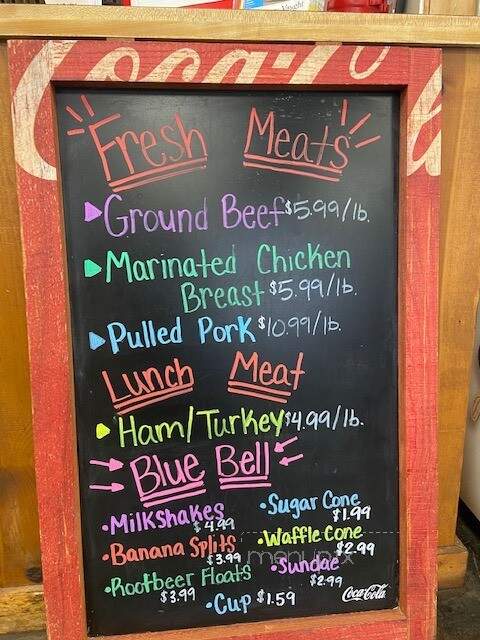 Coca-Cola
Fresh Meats
Ground Beef $5.99/lb.
Marinated Chicken
Breast $5.99/lb.
Pulled Pork $10.99/lb.
Lunch Meat
Ham/Turkey $4.99/lb.
Blue Bell
•Milkshakes $4.99
•Banana Splits $3.99
•Rootbeer Floats $3.99
•Sugar Cone $1.99
•Waffle Cone $2.99
•Sundae $2.99
•Cup $1.59
menupix
Coca-Cola